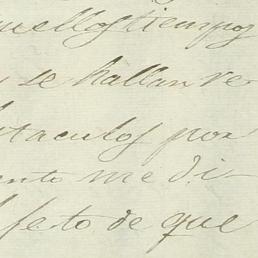 uellos tiempos
se hallan re
taculos por
ento me di-
fecto de que